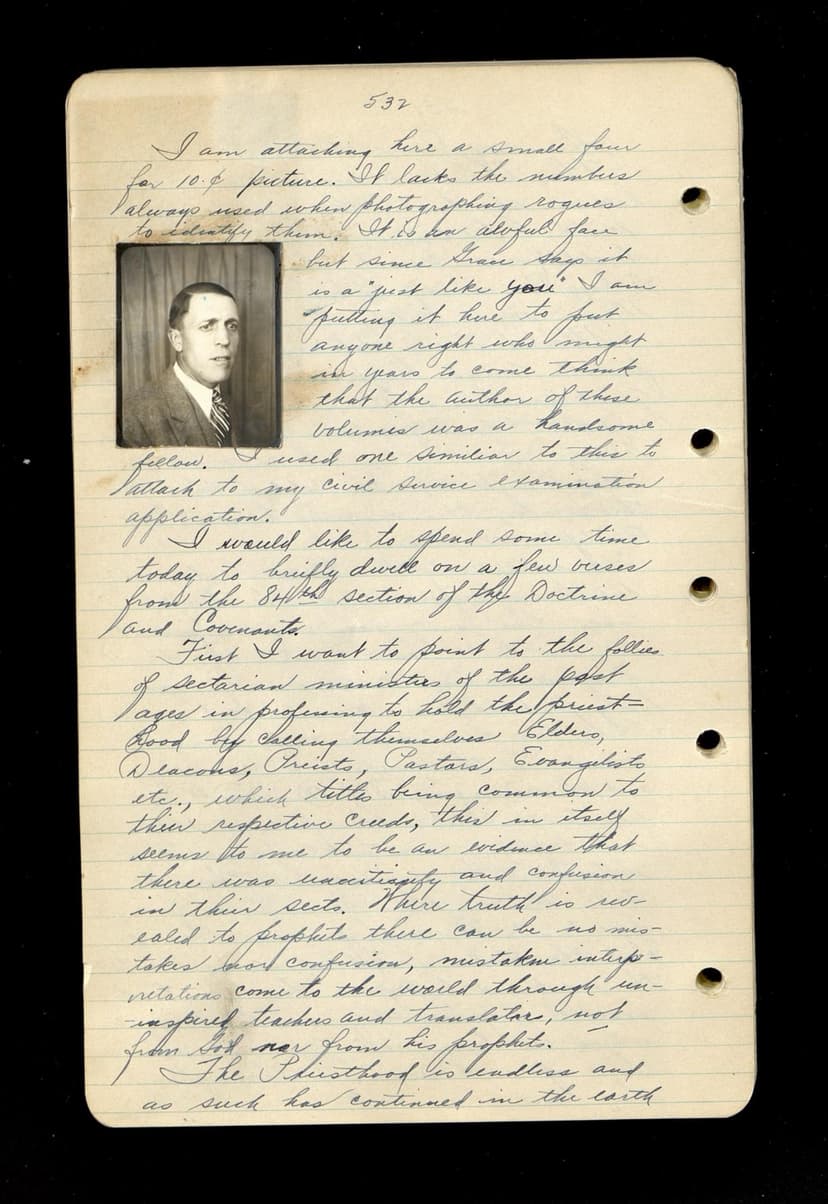 532
I am attaching here a small four
for 10.¢ picture. It lacks the numbers
always used when photographing rogues
to identify them. It is an awful face
but since Grace says it
is a "just like you" I am
putting it here to put
anyone right who might
in years to come think
that the author of these
volumes was a handsome
fellow. I used one similiar to this to
attach to my civil service examination
application.
I would like to spend some time
today to briefly dwell on a few verses
from the 84th section of the Doctrine
and Covenants.
First I want to point to the follies
of sectarian ministers of the past
ages in professing to hold the priest=
hood by calling themselves Elders,
Deacons, Preists, Pastors, Evangelists
etc., which titles being common to
their respective creeds, this in itself
seems to me to be an evidence that
there was and confusion
in their sects. Where truth is rev-
ealed to prophets there can be no mis-
takes nor confusion, mistaken interp-
retations come to the world through un-
-inspired teachers and translators, not
from God nor from his prophets.
The Priesthood is endless and
as such has continued in the earth